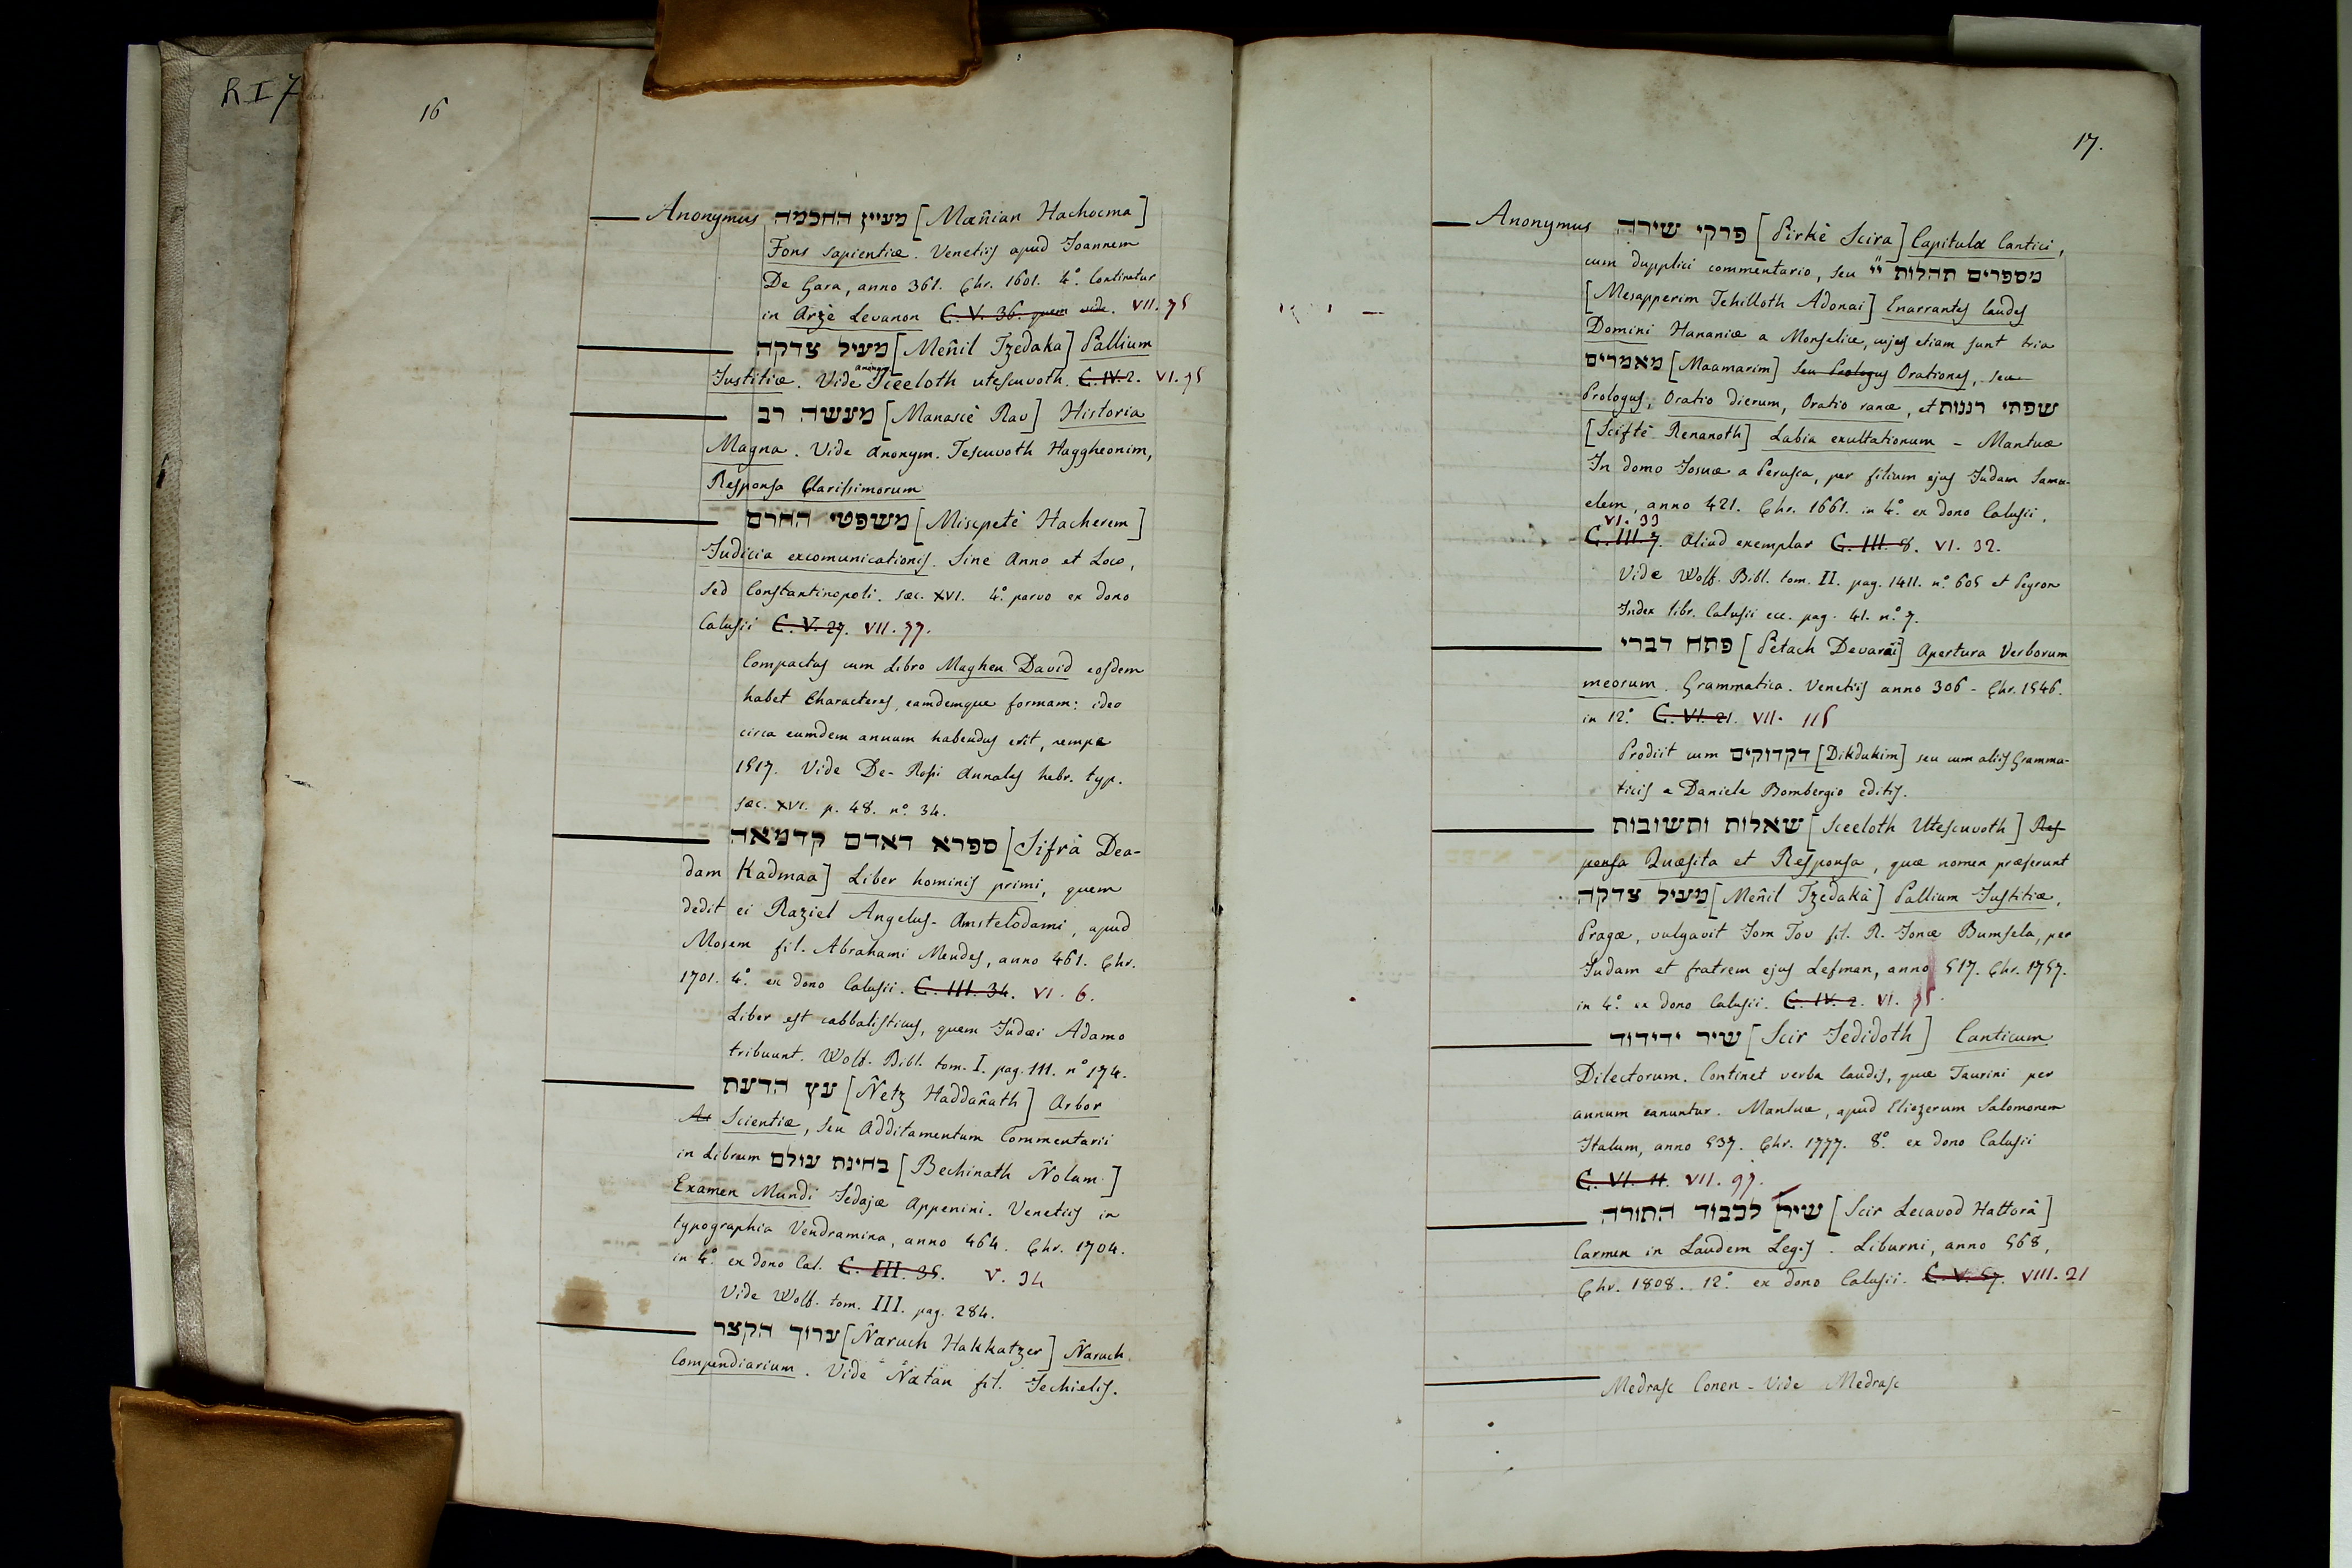 R I 7
16
Anonymus מעיין החכמה [Mañian Hachocma]
Fons sapientiæ. Venetiis apud Joannem
De Gara, anno 361. Chr. 1601. 4º. Continetur
in Arzè Levanon C. V. 36. quem vide. VII. 75
מעיל צדקה [Meñil Tzedaka] Pallium
Justitiæ. Vide anonym. Sceeloth utescuvoth. C. IV. 2. VI. 95
מעשה רב [Manascè Rav] Historia
Magna. Vide Anonym. Tescuvoth Haggheonim,
Responsa Clarissimorum
משפטי החרם [Miscpetè Hacherem]
Judicia excomunicationis. Sine Anno et Loco,
sed Constantinopoli. sæc. XVI. 4º. parvo ex dono
Calusii C. V. 27. VII. 77.
Compactus cum Libro Maghen David eosdem
habet Characteres, eamdemque formam: ideo
circa eumdem annum habendus erit, nempe
1517. Vide De-Rossi Annales hebr. typ.
sæc. XVI. p. 48. nº. 34.
ספרא דאדם קדמאה [Sifrà Dea-
dam Kadmaa] Liber hominis primi, quem
dedit ei Raziel Angelus. Amstelodami, apud
Mosem fil. Abrahami Mendes, anno 461. Chr.
1701. 4º. ex dono Calusii. C. III. 34. VI. 6.
Liber est cabbalisticus, quem Judæi Adamo
tribuunt. Wolf. Bibl. tom. I. pag. 111. nº 174.
עץ הדעת [Ñetz Haddañath] Arbor
Ar Scientiæ, seu Additamentum Commentarii
in Librum בחינת עולם [Bechinath Ñolam]
Examen Mundi Jedajæ Appenini. Venetiis in
typographia Vendramina, anno 464. Chr. 1704.
in 4º. ex dono Cal. C. III. 35. V. 34
Vide Wolf. tom. III. pag. 284.
ערוך הקצר [Ñaruch Hakkatzer] Ñaruch
Compendiarium. Vide Natan fil. Jechielis.
17.
Anonymus פרקי שירה [Pirkè Scira] Capitula Cantici,
cum dupplici commentario, seu מספרים תהלות יי
[Mesapperim Tehilloth Adonai] Enarrantes laudes
Domini Hananiæ a Monselice, cujus etiam sunt tria
מאמרים [Maamarim] seu Prologus Orationes, seu
Prologus, Oratio dierum, Oratio ranæ, et שפתי רננות
[Sciftè Renanoth] Labia exultationum - Mantuæ
In domo Josuæ a Perusia, per filium ejus Judam Samu-
elem, anno 421. Chr. 1661. in 4º. ex dono Calusii.
VI. 33
C. III. 7. Aliud exemplar C. III. 8. VI. 32.
Vide Wolf. Bibl. tom. II. pag. 1411. nº. 605 et Peyron
Index libr. Calusii ecc. pag. 41. nº. 7.
פתח דברי [Pètach Devarài] Apertura Verborum
meorum. Grammatica. Venetiis anno 306 - Chr. 1546.
in 12º. C. VI. 21. VII. 115
Prodiit cum דקדוקים [Dikdukim] seu cum aliis Gramma-
ticis a Daniele Bombergio editis.
שאלות ותשובות [Sceeloth Utescuvoth] Res-
ponsa Quæsita et Responsa, quæ nomen præferunt
מעיל צדקה [Meñil Tzedakà] Pallium Justitiæ,
Pragæ, vulgavit Jom Tov fil. R. Jonæ Bumsela, per
Judam et fratrem ejus Lefman, anno 517. Chr. 1757.
in 4º. ex dono Calusii. C. IV. 2. VI. 95.
שיר ידידוד [Scir Jedidoth] Canticum
Dilectorum. Continet verba laudis, quæ Taurini per
annum canuntur. Mantuæ, apud Eliezerum Salomonem
Italum, anno 537. Chr. 1777. 8º. ex dono Calusii
C. VI. 11. VII. 97.
שיר לכבוד התורה [Scir Lecavod Hattorà]
Carmen in Laudem Legis. Liburni, anno 568,
Chr. 1808. 12º. ex dono Calusii. C. V. 57. VIII. 21
Medrasc Conen - Vide Medrasc